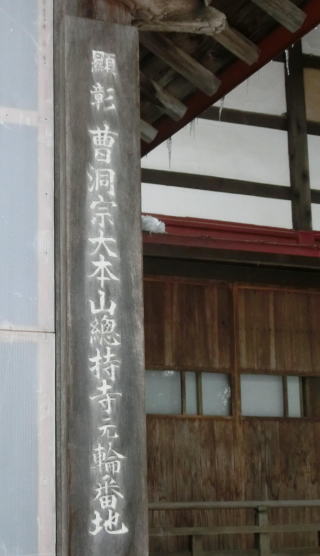 顯彰 曹洞宗大本山總持寺元輪番地